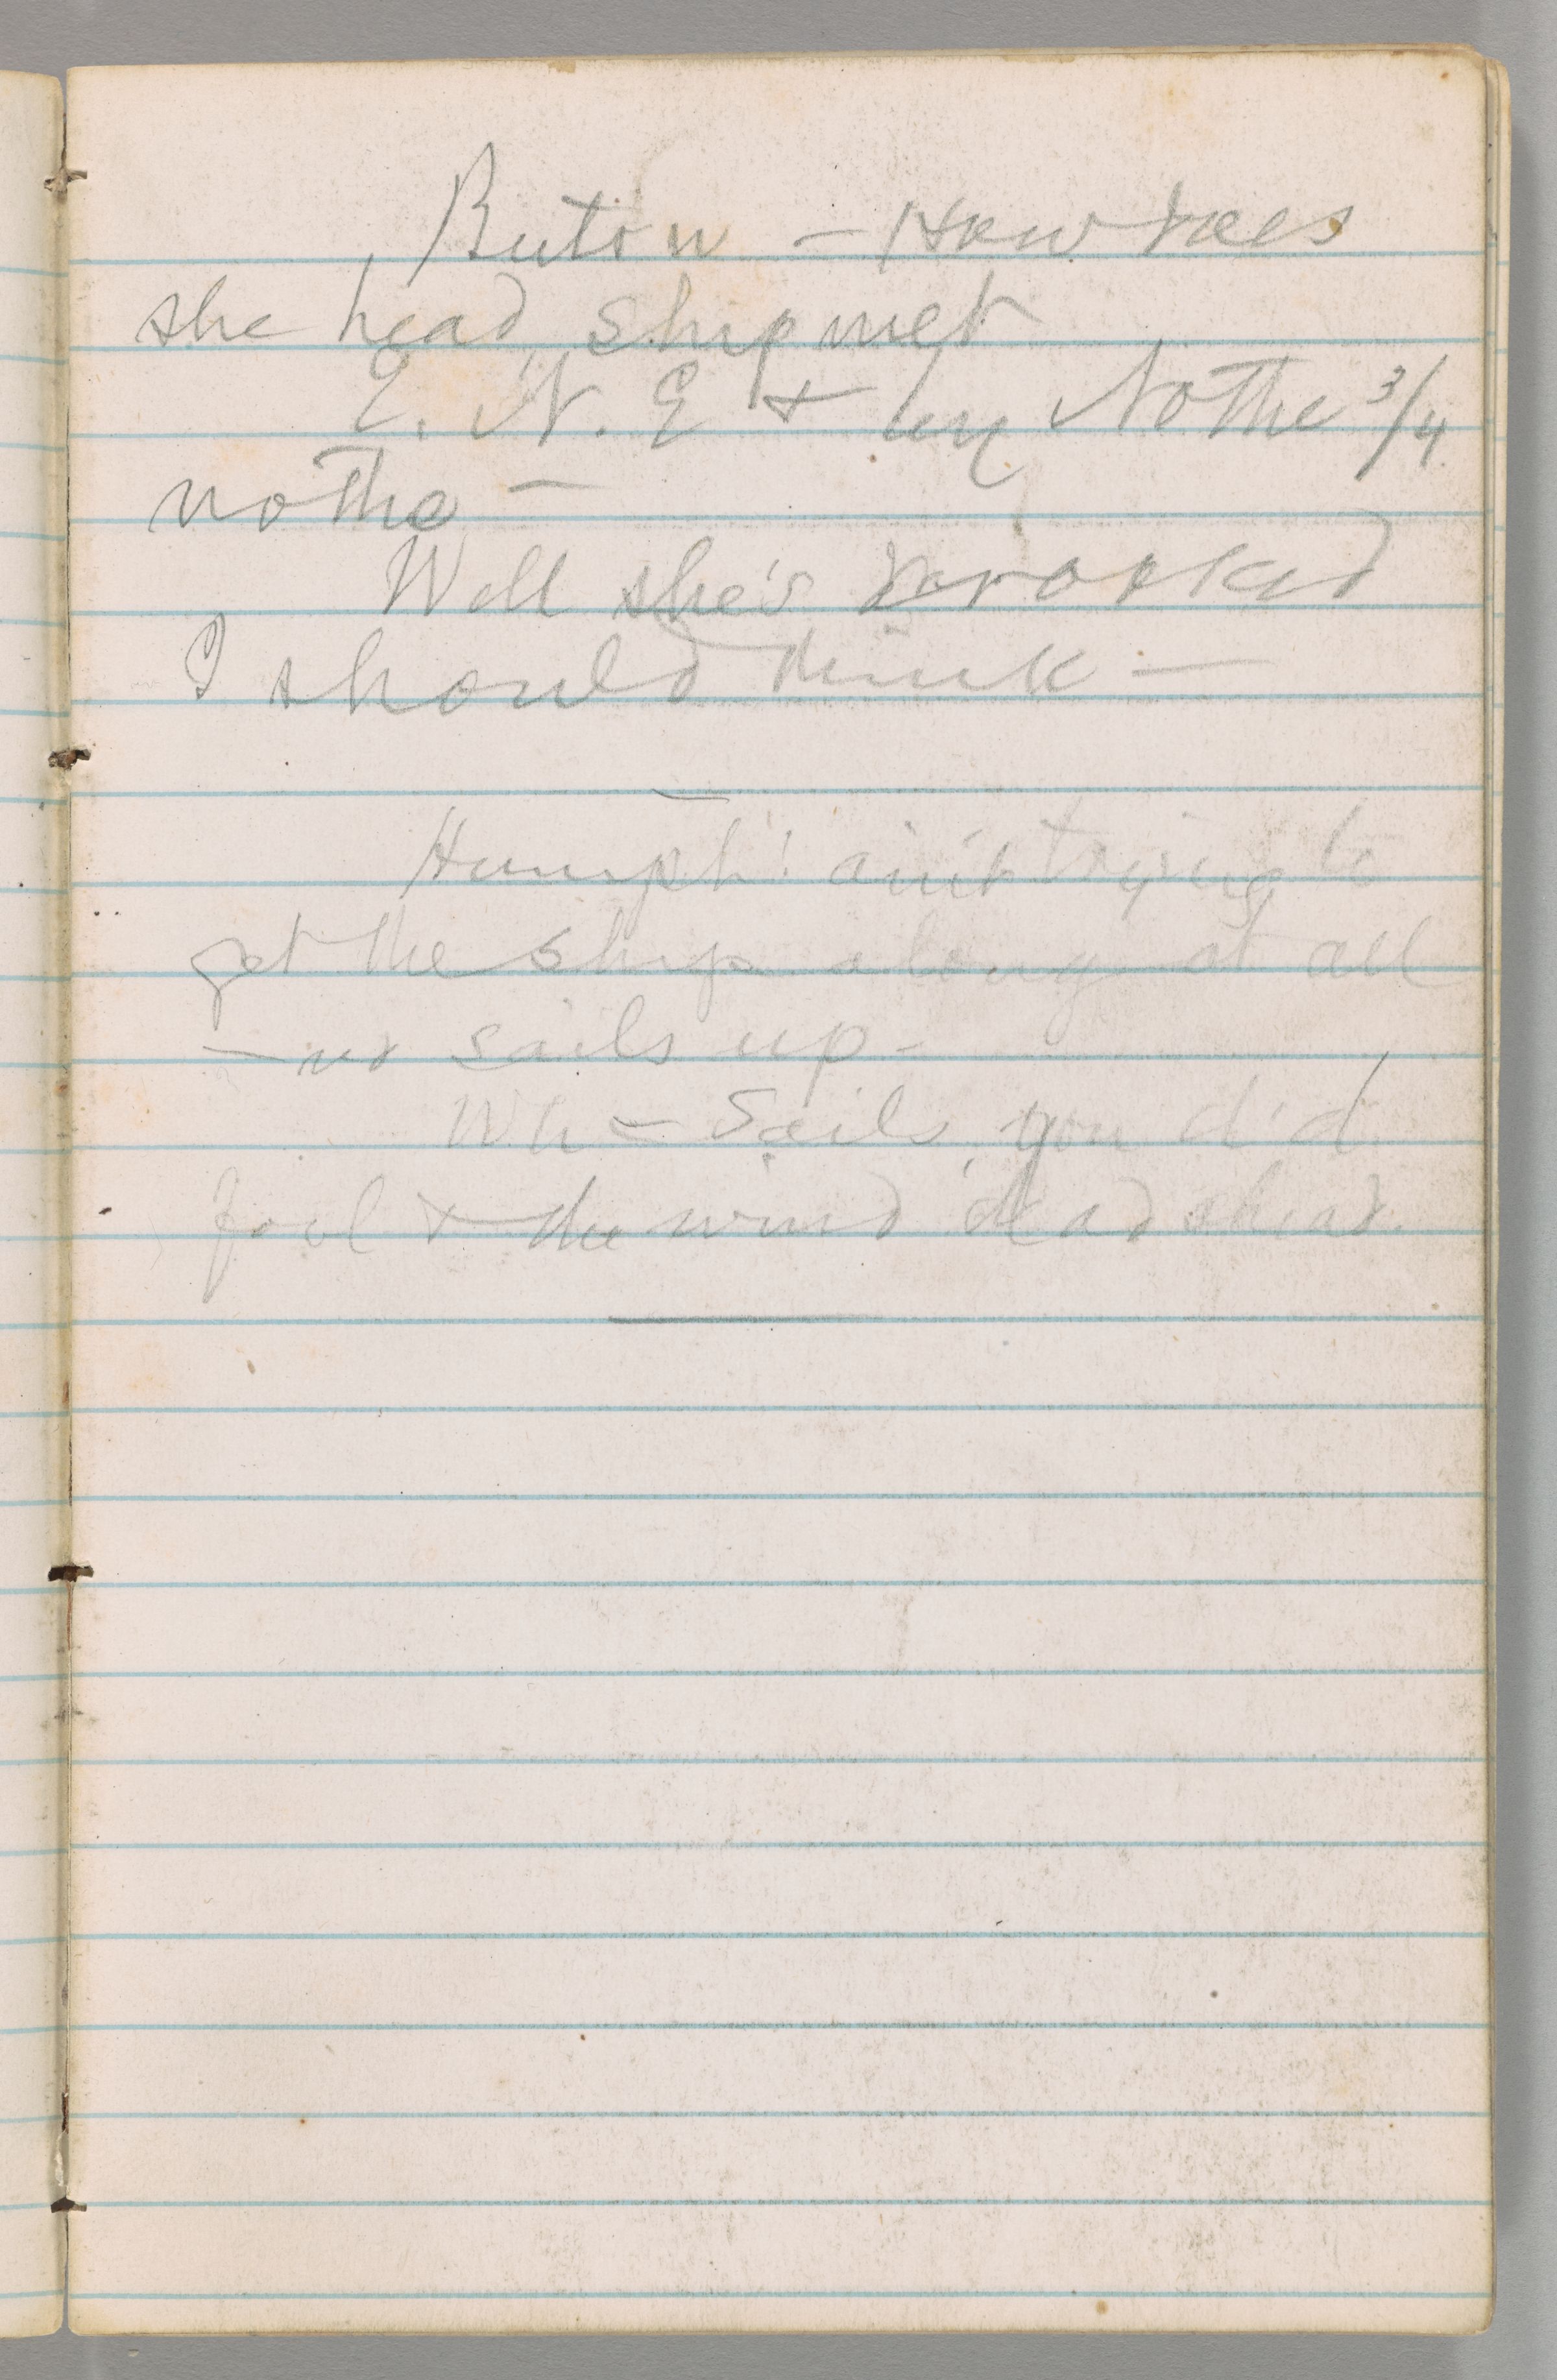 Buton — How does
she head, shipmet
E. N. E & by Nothe 3/4
nothe —
Well she's crooked
I should think —
Humph! ain't trying to
get the ship along at all
— no sails up —
Wh — Sails, you d'd
fool & the wind dead ahead.